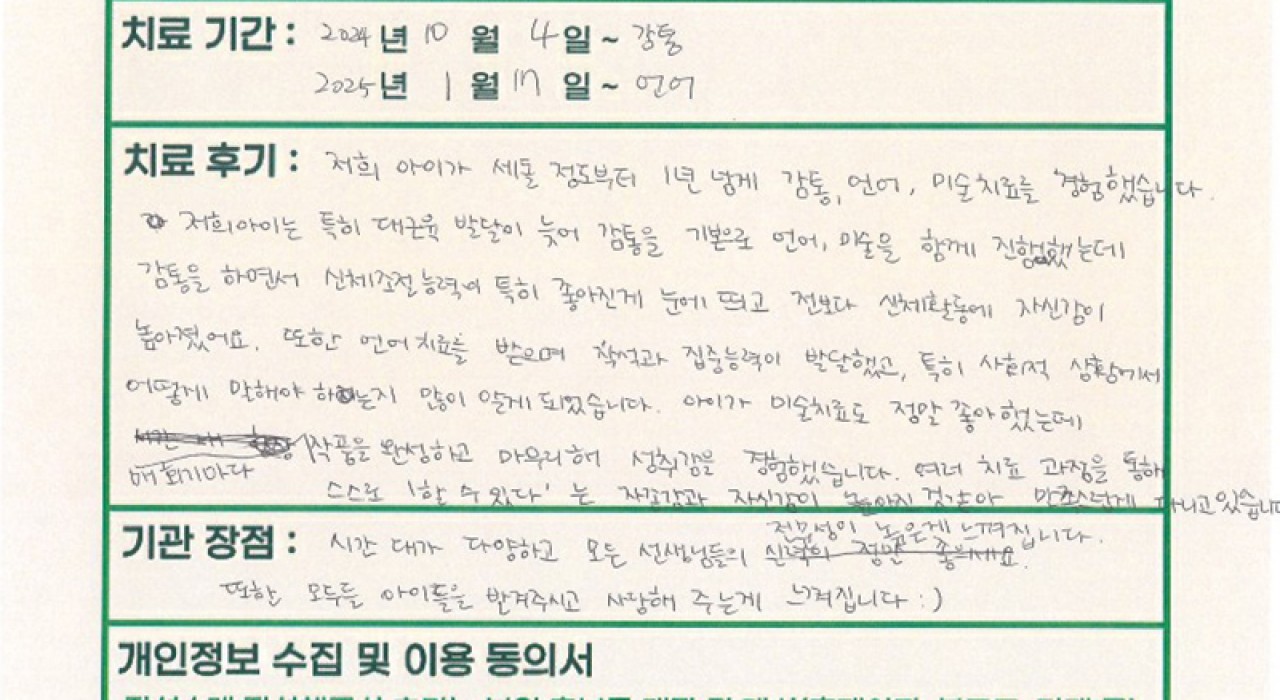 치료 기간 : 2024년 10월 4일 ~ 감통
2025년 1월 17일 ~ 언어
치료 후기 : 저희 아이가 세돌 정도부터 1년 넘게 감통, 언어, 미술치료를 경험했습니다.
저희아이는 특히 대근육 발달이 늦어 감통을 기본으로 언어, 미술을 함께 진행했는데
감통을 하면서 신체조절능력이 특히 좋아진게 눈에 띄고 전보다 신체활동에 자신감이
높아졌어요. 또한 언어치료를 받으며 착석과 집중능력이 발달했고, 특히 사회적 상황에서
어떻게 말해야 하는지 많이 알게 되었습니다. 아이가 미술치료도 정말 좋아했는데
매 회기마다 작품을 완성하고 마무리해 성취감을 경험했습니다. 여러 치료 과정을 통해
스스로 '할 수 있다' 는 자존감과 자신감이 높아진 것같아 만족스럽게 다니고있습니다
기관 장점 : 시간 대가 다양하고 모든 선생님들의 전문성이 높은게 느껴집니다.
또한 모두들 아이들을 반겨주시고 사랑해 주는게 느껴집니다 :)
개인정보 수집 및 이용 동의서